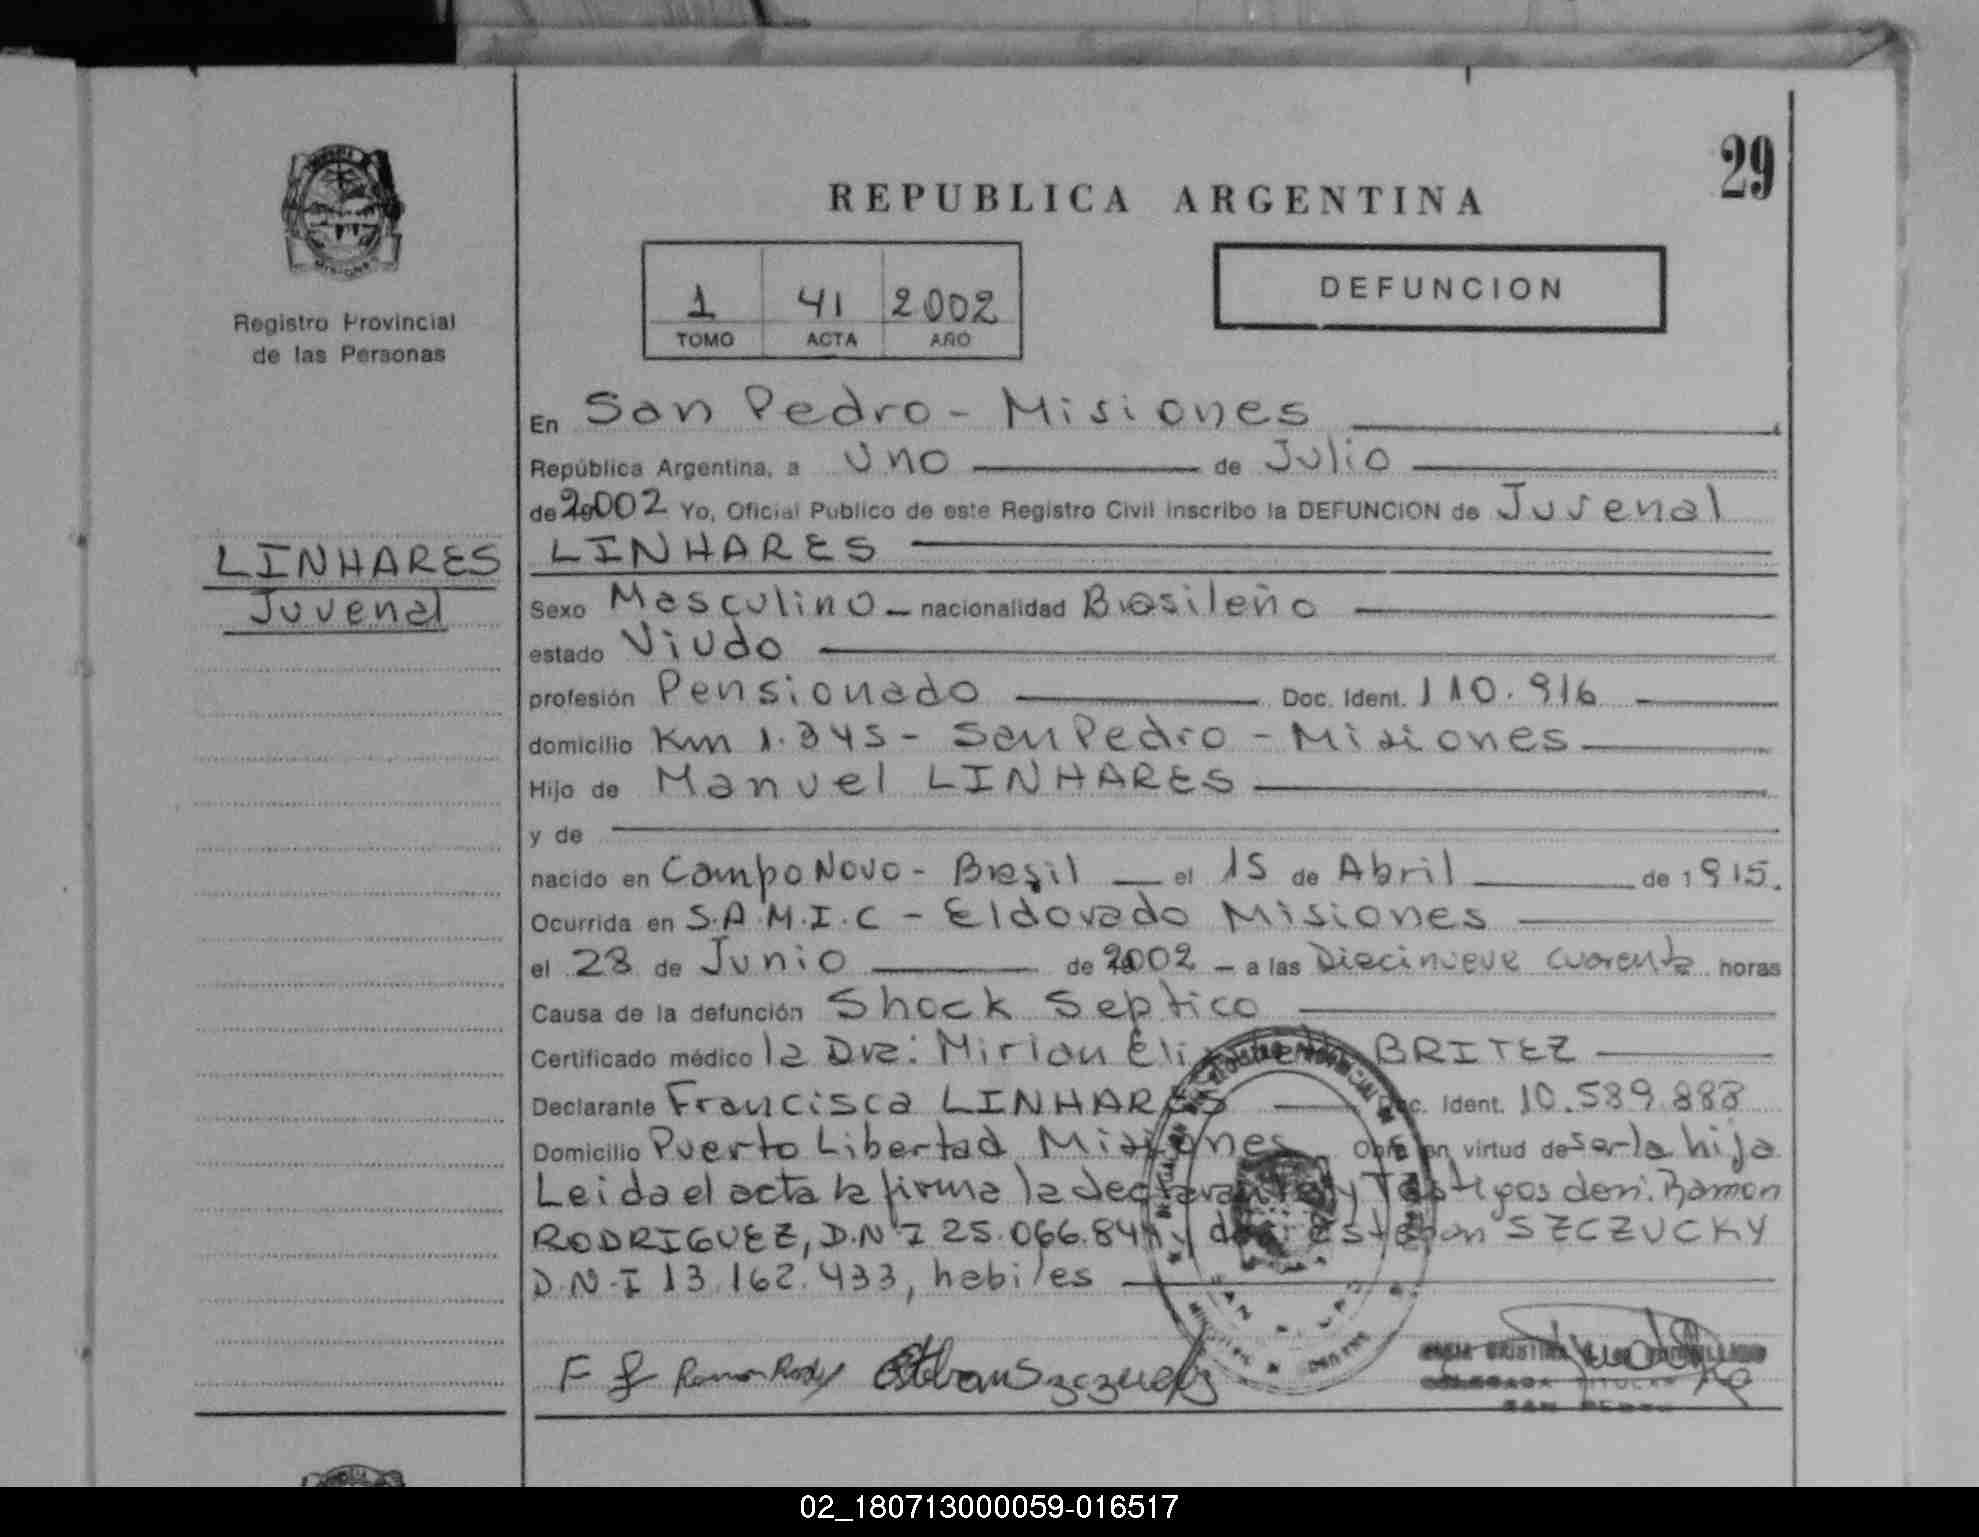 29
REPUBLICA ARGENTINA
1 41 2002
TOMO ACTA AÑO
DEFUNCION
Registro Provincial
de las Personas
LINHARES
Juvenal
En San Pedro - Misiones
República Argentina, a Uno de Julio
de 2002 Yo, Oficial Publico de este Registro Civil inscribo la DEFUNCION de Juvenal
LINHARES
Sexo Masculino - nacionalidad Brasileño
estado Viudo
profesión Pensionado Doc. Ident. 110.916
domicilio Km 1.345 - San Pedro - Misiones
Hijo de Manuel LINHARES
y de
nacido en Campo Novo - Brasil el 15 de Abril de 1915.
Ocurrida en S.A.M.I.C - Eldorado Misiones
el 28 de Junio de 2002 - a las Diecinueve cuarenta horas
Causa de la defunción Shock Septico
Certificado médico la Dra: Mirian BRITEZ
Declarante Francisca LINHARES Doc. Ident. 10.589.888
Domicilio Puerto Libertad Misiones Obra en virtud de ser la hija
Leida el acta la firma la declarante y Testigos don: Ramon
RODRIGUEZ, D.N.I 25.066.844 y don: Esteban SZCZUCKY
D.N.I 13.162.433, habiles
F
SAN PEDRO
02_180713000059-016517